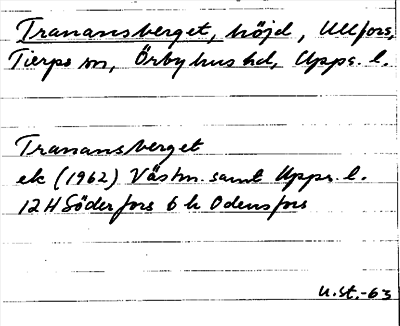 Tranansberget, höjd, Ullfors,
Tierps sn, Örbyhus hd, Upps. l.
Tranansberget
ek (1962) Västm. samt Upps. l.
12H Söderfors 6 h Odensfors
u.st.-63